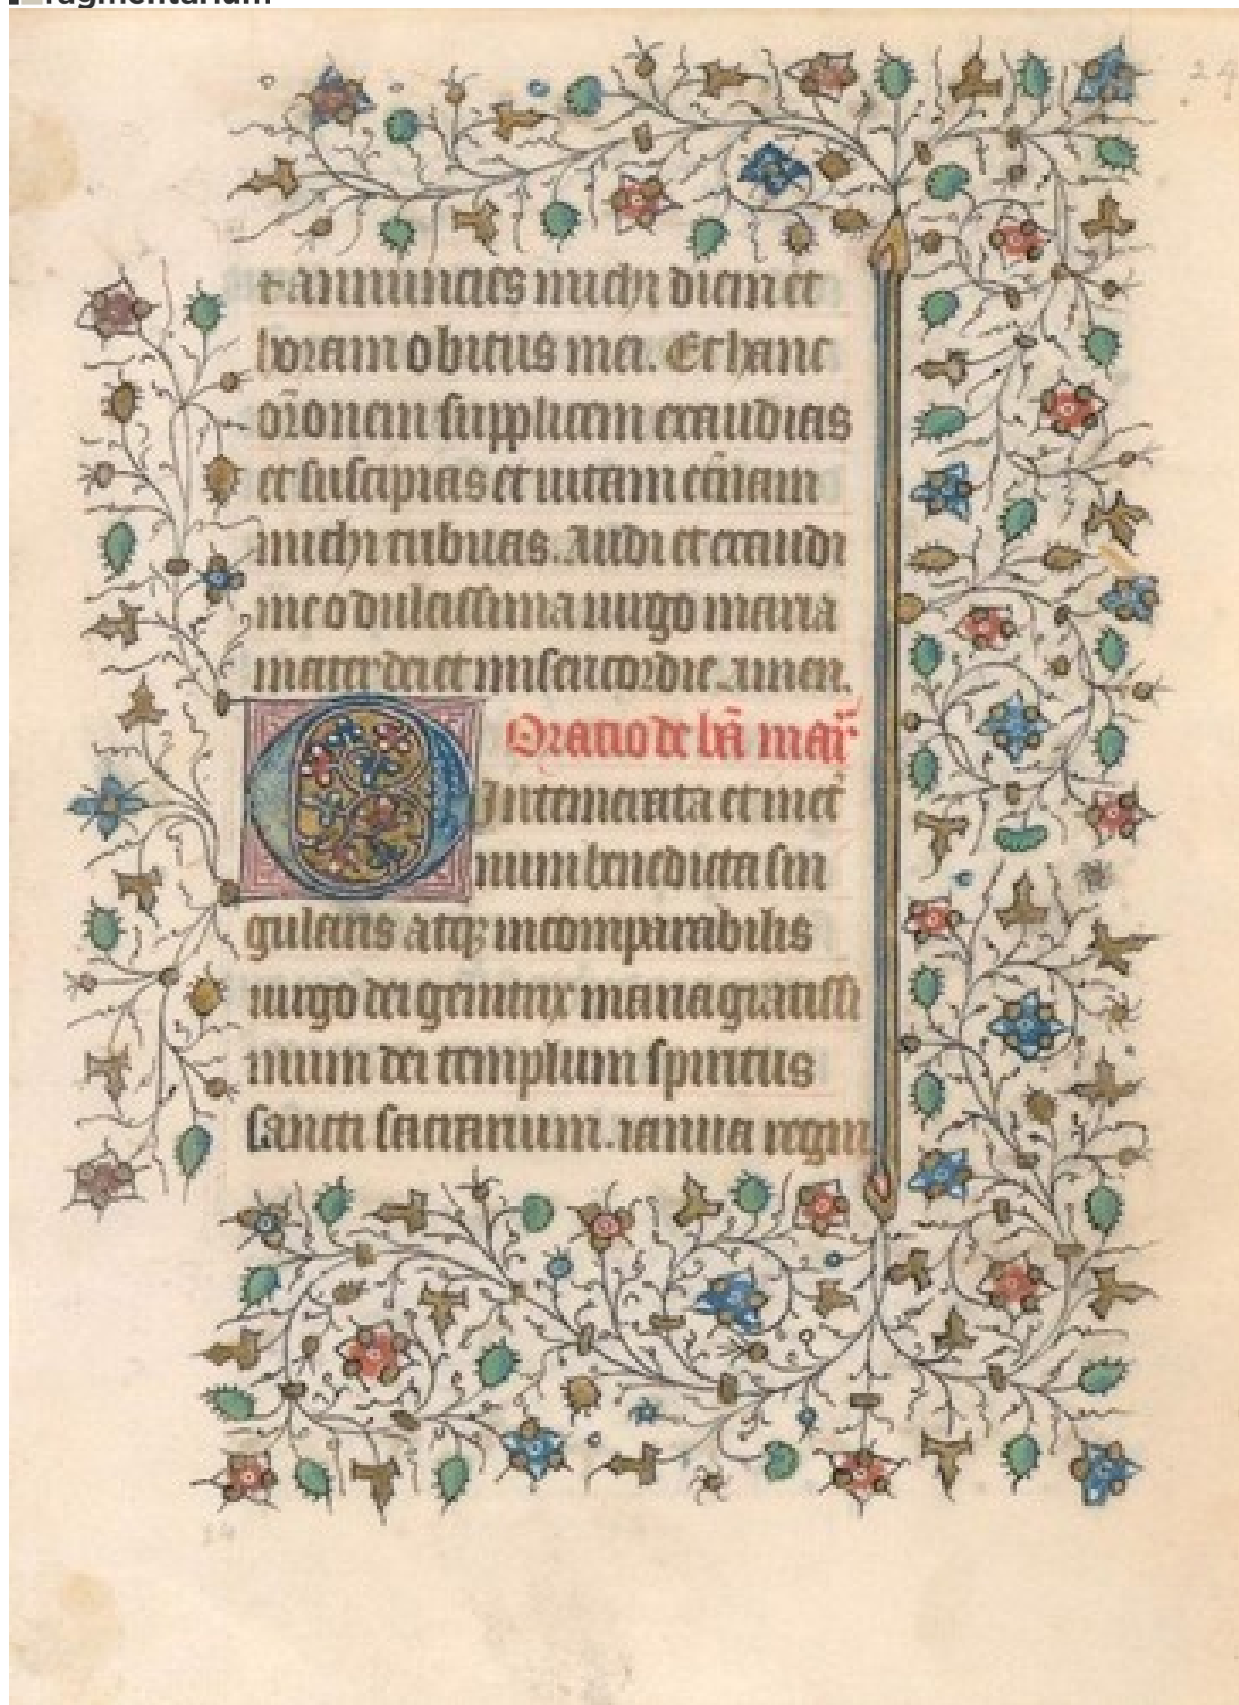 ragmentarium
24
et annuncies michi diem et
horam obitus mei. Et hanc
orõnem supplicem exaudias
et suscipias et uitam et̃nam
michi tribuas. Audi et exaudi
me o dulcissima uirgo maria
mater dei et misericordie. amen.
Oratio de bã mar̃
O Intemerata et in et̃
num benedicta sin
gularis atqꝫ incomparabilis
uirgo dei genitrix maria gratissi
mum dei templum spiritus
sancti sacrarium. ianua regni
24